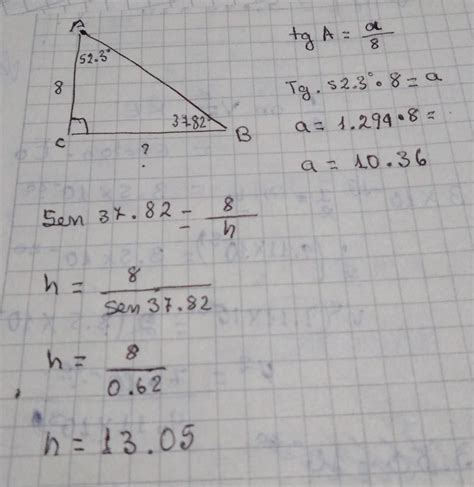 A
52.3°
8
37.82°
C
B
?
tg A = a/8
Tg. 52.3° · 8 = a
a = 1.294 · 8 =
a = 10.36
Sen 37.82 = 8/h
h = 8/Sen 37.82
h = 8/0.62
h = 13.05